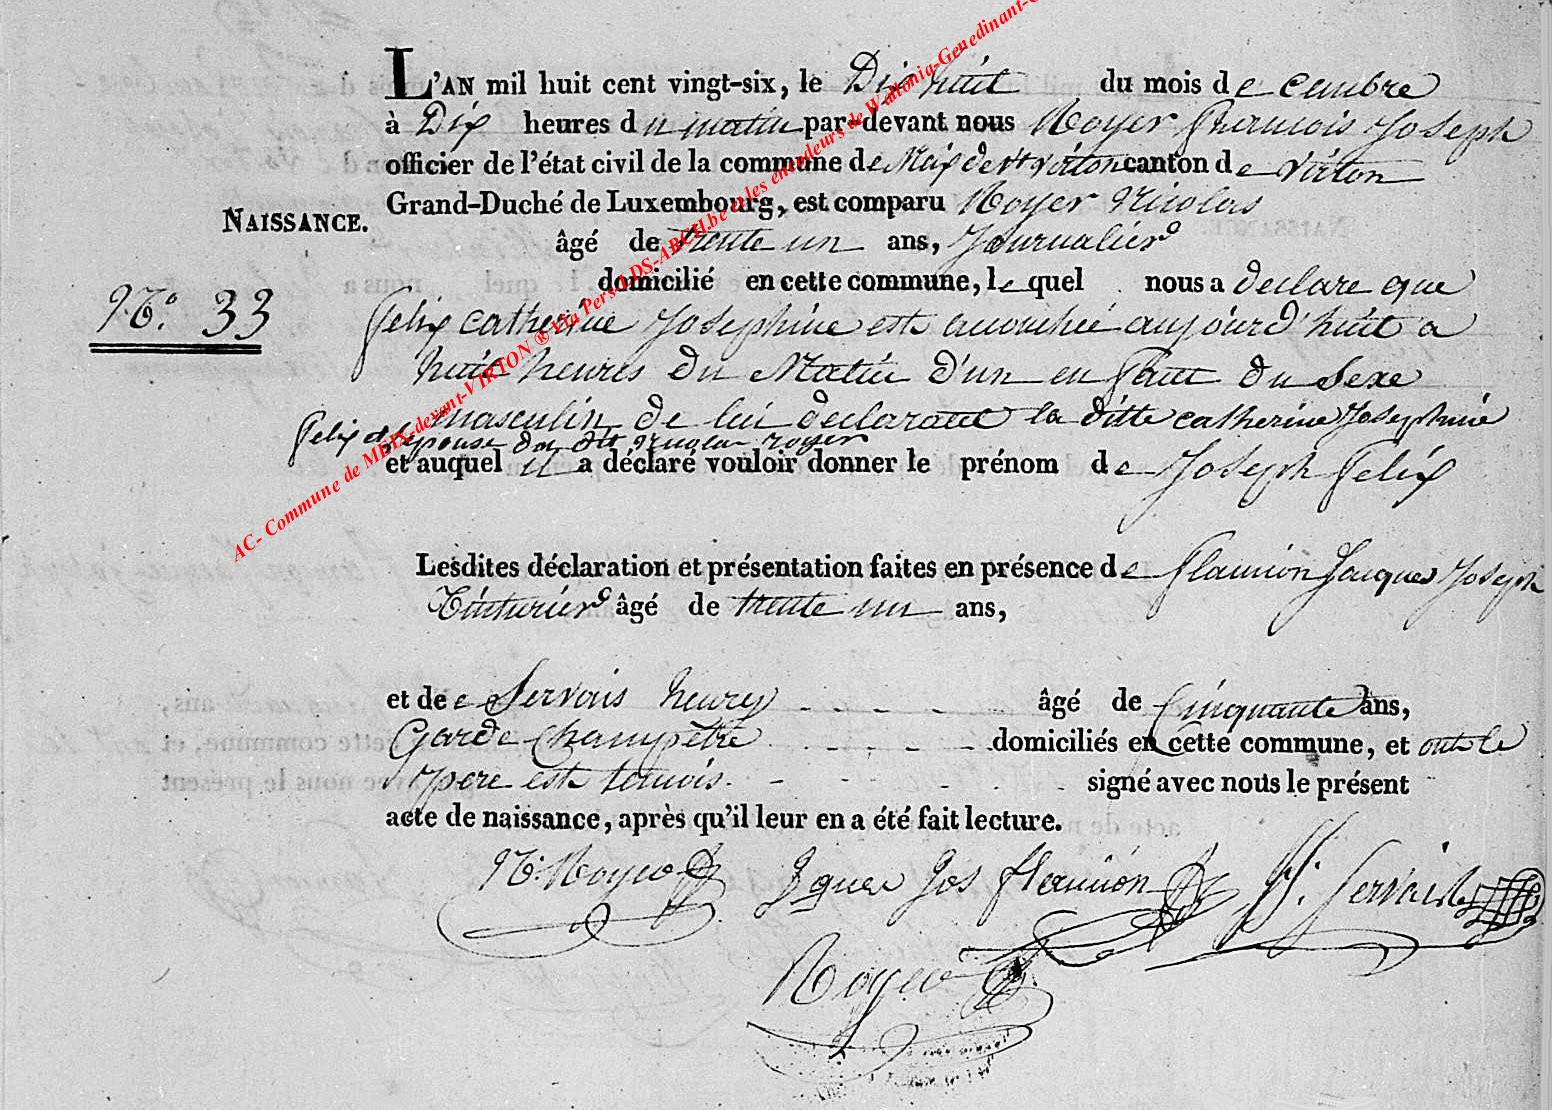 L'AN mil huit cent vingt-six, le Dix huit du mois de cembre
à Dix heures du matin par-devant nous Royer francois Joseph
officier de l'état civil de la commune de Meix devt virton canton de virton
Grand-Duché de Luxembourg, est comparu Royer Nicolas
NAISSANCE.
âgé de trente un ans, Journalier
domicilié en cette commune, lequel nous a declare que
N.° 33
felix catherine Josephine est accouchée aujourd'huit a
huit heures du Matin d'un enfant du Sexe
masculin de lui declarant la ditte catherine Josephine
felix et epouse du dit Nicolas royer
et auquel il a déclaré vouloir donner le prénom de Joseph felix
Lesdites déclaration et présentation faites en présence de flamion Jacques Joseph
Tinturier âgé de trente un ans,
et de Servais henry âgé de Cinquante ans,
Garde Champetre domiciliés en cette commune, et ont le
pere est temois signé avec nous le présent
acte de naissance, après qu'il leur en a été fait lecture.
N. Royer Jques Jos flamion H. Servais
Royer
AC- Commune de MEIX-devant-VIRTON ® Via Pers LDS-ARCH.be et les encodeurs de Wallonia-Genedinant-